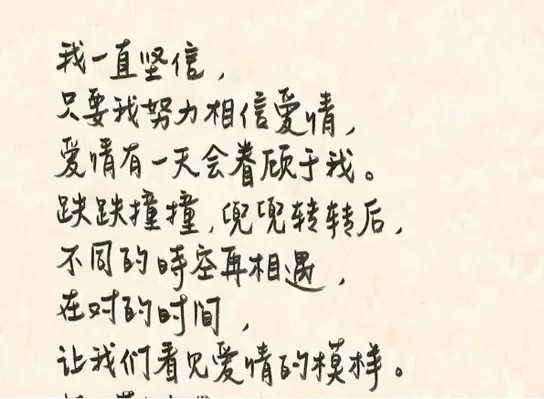 我一直坚信，
只要我努力相信爱情，
爱情有一天会眷顾于我。
跌跌撞撞，兜兜转转后，
不同的時空再相遇，
在对的时间，
让我们看见爱情的模样。